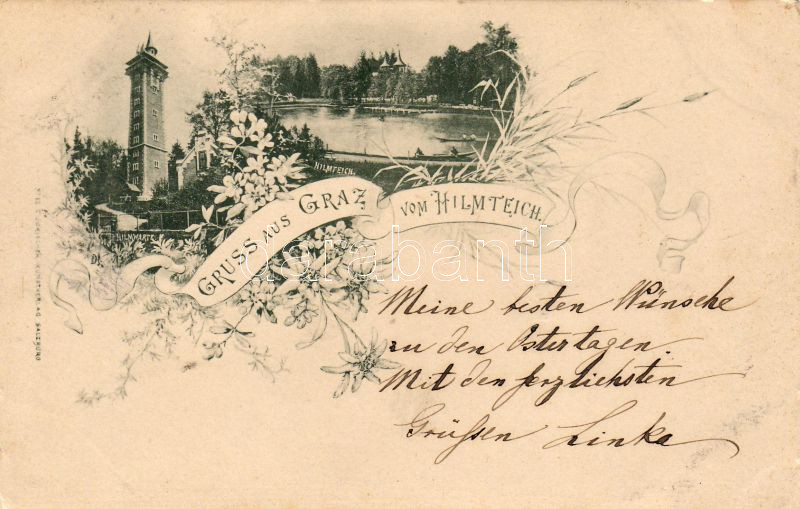 HILMTEICH.
HILMWARTE
GRUSS AUS GRAZ
VOM HILMTEICH.
darabanth
Meine besten Wünsche
zu den Ostertagen.
Mit den herzlichsten
Grüßen Linka
SALZBURG